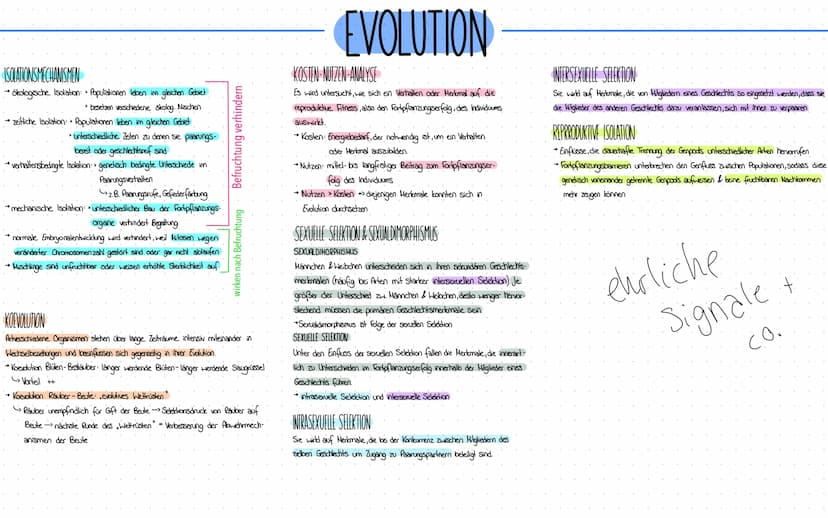 EVOLUTION
ISOLATIONSMECHANISMEN
→ ökologische Isolation → Populationen leben im gleichen Gebiet
→ besetzen verschiedene ökolog. Nischen
→ zeitliche Isolation → Populationen leben im gleichen Gebiet
→ unterschiedliche Zeiten zu denen sie paarungs-
bereit oder geschlechtsreif sind
→ verhaltensbedingte Isolation → genetisch bedingte Unterschiede im
Paarungsverhalten
↳ z.B. Paarungsrufe, Gefiederfärbung
→ mechanische Isolation → unterschiedlicher Bau der Fortpflanzungs-
organe verhindert Begattung
Befruchtung verhindern
→ normale Embryonalentwicklung wird verhindert, weil Mitosen wegen
veränderter Chromosomenzahl gestört sind oder gar nicht ablaufen
→ Mischlinge sind unfruchtbar oder weisen erhöhte Sterblichkeit auf
wirken nach Befruchtung
KOEVOLUTION
Artverschiedene Organismen stehen über lange Zeiträume intensiv miteinander in
Wechselbeziehungen und beeinflussen sich gegenseitig in ihrer Evolution.
→ Koevolution Blüten-Bestäuber: länger werdende Blüten - länger werdende Saugrüssel
↳ Vorteil ++
→ Koevolution Räuber-Beute: „evolutives Wettrüsten"
↳ Räuber unempfindlich für Gift der Beute → Selektionsdruck von Räuber auf
Beute → nächste Runde des „Wettrüsten" = Verbesserung der Abwehrmech-
anismen der Beute
KOSTEN-NUTZEN-ANALYSE
Es wird untersucht, wie sich ein Verhalten oder Merkmal auf die
reproduktive Fitness, also den Fortpflanzungserfolg, des Individuums
auswirkt.
→ Kosten: Energiebedarf, der notwendig ist, um ein Verhalten
oder Merkmal auszubilden.
→ Nutzen: mittel- bis langfristiger Beitrag zum Fortpflanzungser-
folg des Individuums
→ Nutzen > Kosten → diejenigen Merkmale konnten sich in
Evolution durchsetzen
SEXUELLE SELEKTION & SEXUALDIMORPHISMUS
SEXUALDIMORPHISMUS
Männchen & Weibchen unterscheiden sich in ihren sekundären Geschlechts-
merkmalen (häufig bei Arten mit starker intersexuellen Selektion). Je
größer der Unterschied zw. Männchen & Weibchen, desto weniger hervor-
stechend müssen die primären Geschlechtsmerkmale sein.
→ Sexualdimorphismus ist Folge der sexuellen Selektion
SEXUELLE SELEKTION
Unter den Einfluss der sexuellen Selektion fallen die Merkmale, die innerart-
lich zu Unterschieden im Fortpflanzungserfolg innerhalb der Mitglieder eines
Geschlechts führen.
→ intrasexuelle Selektion und intersexuelle Selektion
INTRASEXUELLE SELEKTION
Sie wirkt auf Merkmale, die bei der Konkurrenz zwischen Mitgliedern des
selben Geschlechts um Zugang zu Paarungspartnern beteiligt sind.
INTERSEXUELLE SELEKTION
Sie wirkt auf Merkmale, die von Mitgliedern eines Geschlechts so eingesetzt werden, dass sie
die Mitglieder des anderen Geschlechts dazu veranlassen, sich mit ihnen zu verpaaren.
REPRODUKTIVE ISOLATION
→ Einflüsse, die dauerhafte Trennung des Genpools unterschiedlicher Arten hervorrufen
→ Fortpflanzungsbarrieren unterbrechen den Genfluss zwischen Populationen, sodass diese
genetisch voneinander getrennte Genpools aufweisen & keine fruchtbaren Nachkommen
mehr zeugen können
ehrliche
signale +
co.